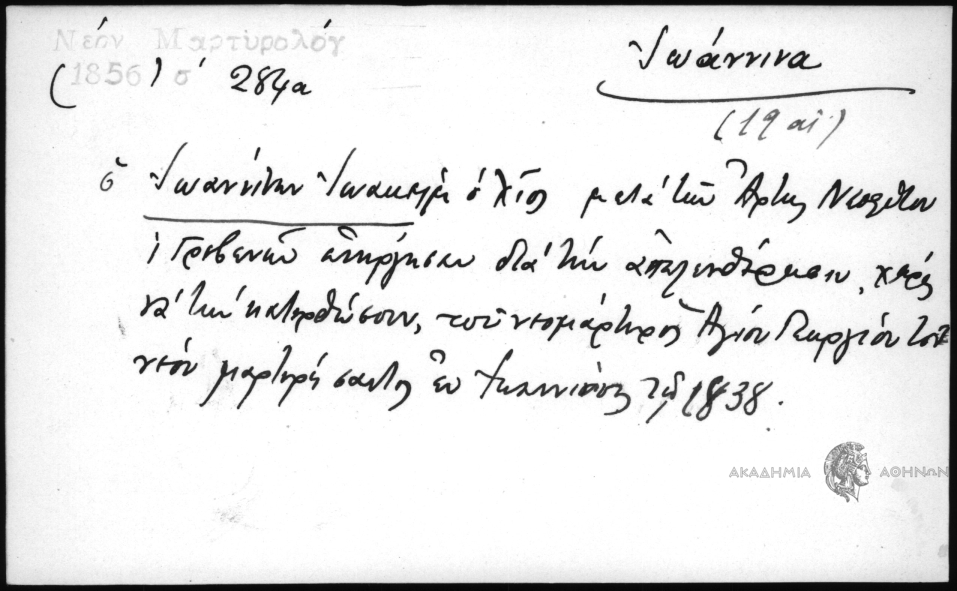 Νέον Μαρτυρολόγ
(1856) σ' 284α
Ἰωάννινα
(19 αἰ.)
ὁ Ἰωαννίνων Ἰωακεὶμ ὁ Χῖος μετὰ τοῦ Ἄρτης Νεοφύτου
Γρεβενῶν ἐνήργησαν διὰ τὴν ἀπελευθέρωσιν, χωρὶς
νὰ τὴν κατορθώσουν, τοῦ νεομάρτυρος Ἁγίου Γεωργίου τοῦ
νέου μαρτυρήσαντος ἐν Ἰωαννίνοις τῷ 1838.
ΑΚΑΔΗΜΙΑ ΑΘΗΝΩΝ